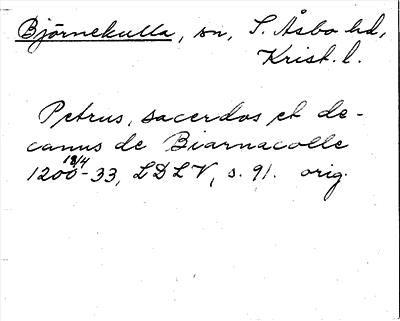 Björnekulla, sn, S. Åsbo hd,
Krist. l.
Petrus, sacerdos et de-
canus de Biarnacolle
18/4
1200-33, LDLV, s. 91. orig.